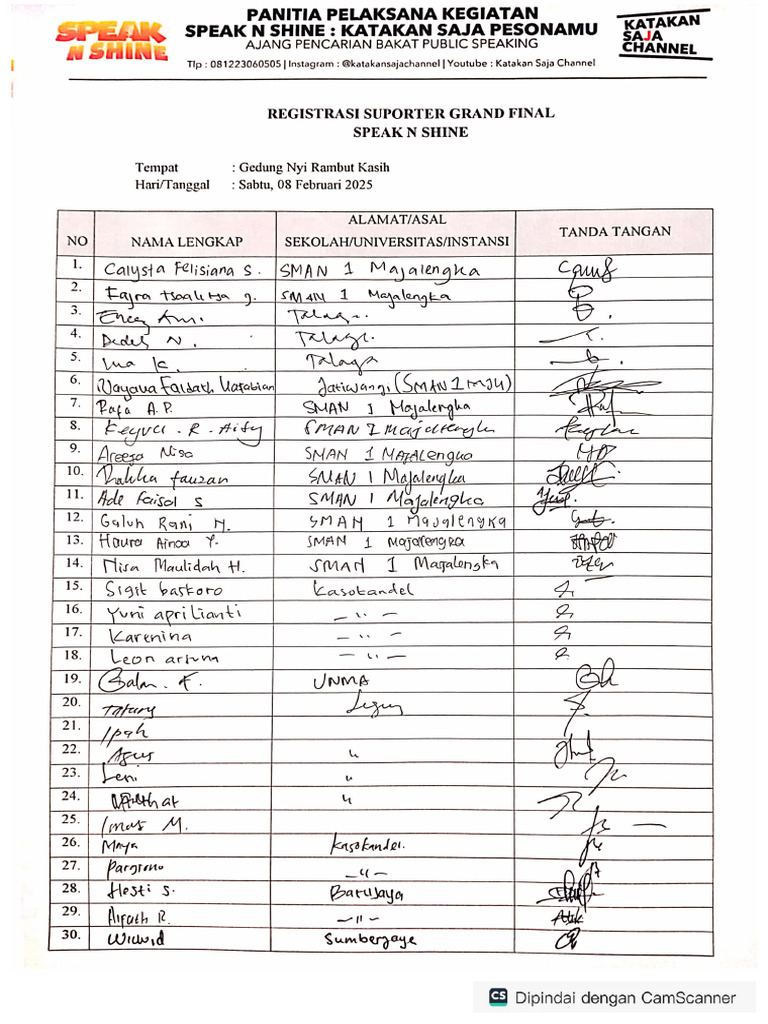 SPEAK
N SHINE
PANITIA PELAKSANA KEGIATAN
SPEAK N SHINE : KATAKAN SAJA PESONAMU
AJANG PENCARIAN BAKAT PUBLIC SPEAKING
Tlp : 081223060505 | Instagram : @katakansajachannel | Youtube : Katakan Saja Channel
KATAKAN
SAJA
CHANNEL
REGISTRASI SUPORTER GRAND FINAL
SPEAK N SHINE
Tempat : Gedung Nyi Rambut Kasih
Hari/Tanggal : Sabtu, 08 Februari 2025
NO NAMA LENGKAP ALAMAT/ASAL SEKOLAH/UNIVERSITAS/INSTANSI TANDA TANGAN
1. Calysta Felisiana S. SMAN 1 Majalengka
2. SMAN 1 Majalengka
3.
4. N.
5. K. Talaga
6. Jatiwangi (SMAN 1 MJL)
7. Rafa A.P. SMAN 1 Majalengka
8. SMAN 1 Majalengka
9. Areesa Nisa SMAN 1 MAJALENGKA
10. fauzan SMAN 1 Majalengka
11. Ade Faisal S SMAN 1 Majalengka
12. Galuh Rani M. SMAN 1 MAJALENGKA
13. Haura Ainaa Y. SMAN 1 Majalengka
14. Nisa Maulidah H. SMAN 1 Majalengka
15. Sigit baskoro Kasokandel
16. Yuni aprilianti - " -
17. Karenina - " -
18. Leon - " -
19. F. UNMA
20.
21. Ipah
22. Agus "
23. Leni "
24. "
25. Imas M.
26. Maya Kasokandel.
27. - " -
28. Hesti S. Barujaya
29. R. - " -
30. Wiwid Sumberjaya
CS Dipindai dengan CamScanner